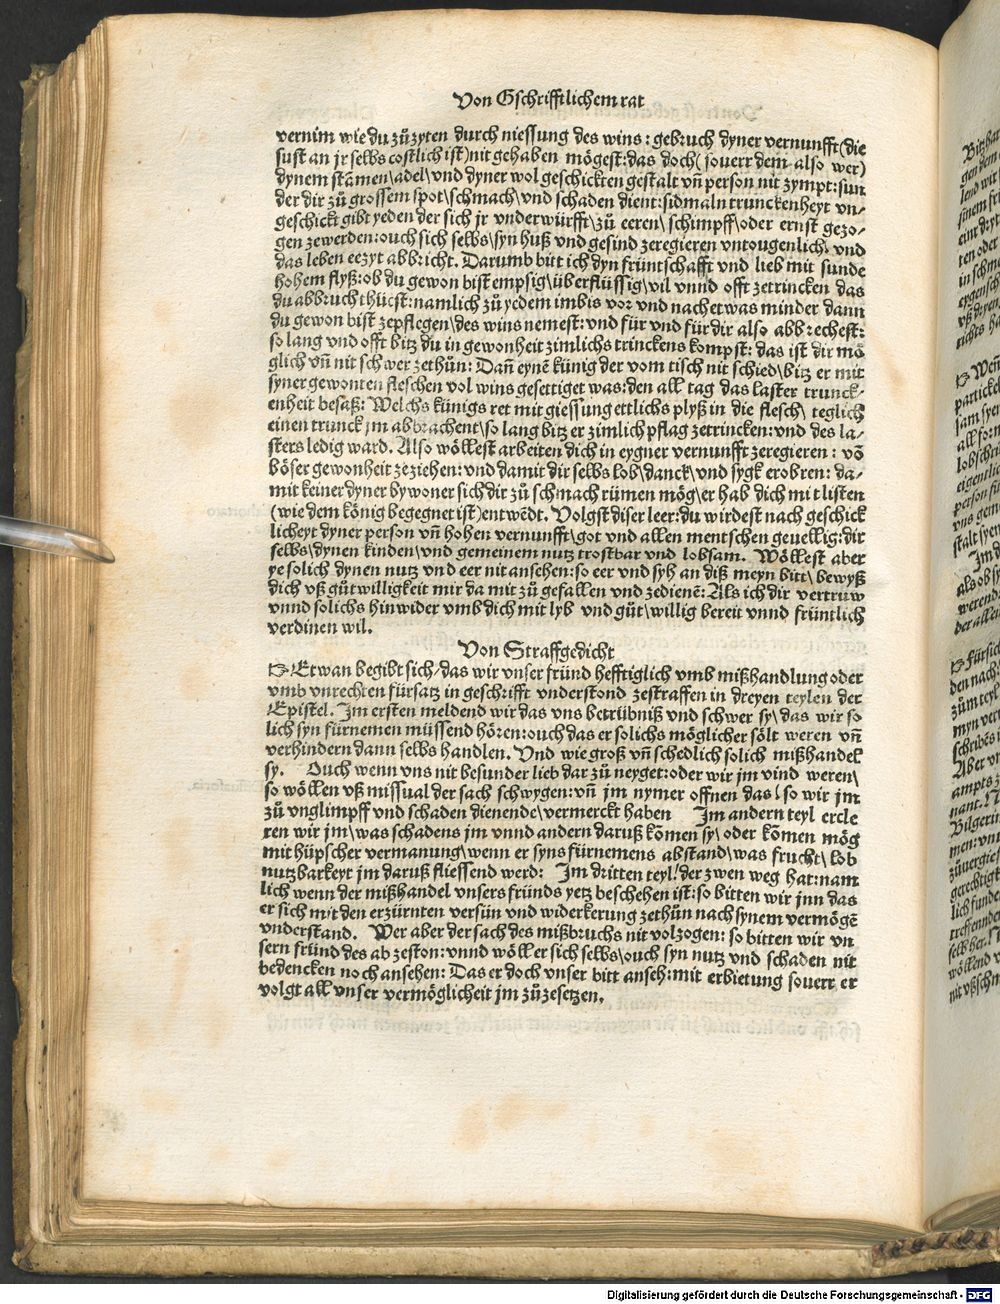 Von Gschrifftlichem rat
vernim wie du zů zyten durch niessung des wins: gebruch dyner vernunfft (die
sust an jr selbs costlich ist) nit gehaben mögest: das doch (souerr dem also wer)
dynem stām̄en\adel\ vnd dyner wol geschickten gestalt vn̄ person nit zympt: sun
der dir zů grossem spot\schmach\ vnd schaden dient: sidmaln trunckenheyt vn-
geschickt gibt yeden der sich jr vnderwürfft\zů eeren\ schimpff\oder ernst gezo-
gen zewerden: ouch sich selbs\syn huß vnd gesind zeregieren vntougenlich. vnd
das leben eezyt abbricht. Darumb bitt ich dyn früntschafft vnd lieb mit sunde
hohem flyß: ob du gewon bist empsig\überflüssig\vil vnnd offt zetrincken das
du abbruch thüest: namlich zů yedem imbis vor vnd nach etwas minder dann
du gewon bist zepflegen\des wins nemest: vnd für vnd für dir also abbrechest:
so lang vnd offt bitz du in gewonheit zimlichs trinckens kompst: das ist dir mö
glich vn̄ nit schwer zethůn: Dan̄ eynē künig der vom tisch nit schied\bitz er mit
syner gewonten fleschen vol wins gesettiget was: den all tag das laster trunck-
enheit besaß: Welchs künigs ret mit giessung ettlichs plyß in die flesch\ teglich
einen trunck jm abbrachent\so lang bitz er zimlich pflag zetrincken: vnd des la-
sters ledig ward. Also wöllest arbeiten dich in eygner vernunfft zeregieren: vō
böser gewonheit zeziehen: vnd damit dir selbs lob\danck\vnd sygk erobren: da-
mit keiner dyner bywoner sich dir zů schmach rümen mög\er hab dich mit listen
(wie dem könig begegnet ist) entwēdt. Volgst diser leer: du wirdest nach geschick
licheyt dyner person vn̄ hohen vernunfft\got vnd allen mentschen geuellig: dir
selbs\dynen kinden\vnd gemeinem nutz trostbar vnd lobsam. Wöllest aber
ye solich dynen nutz vnd eer nit ansehen: so eer vnd syh an diß meyn bitt\ bewyß
dich vß gůtwilligkeit mir da mit zů gefallen vnd zedienē: Als ich dir vertruw
vnnd solichs hinwider vmb dich mit lyb vnd gůt\willig bereit vnnd früntlich
verdinen wil.
Von Straffgedicht
☞ Etwan begibt sich\das wir vnser fründ hefftiglich vmb mißhandlung oder
vmb vnrechten fürsatz in geschrifft vnderstond zestraffen in dreyen teylen der
Epistel. Im ersten meldend wir das vns betrübniß vnd schwer sy\das wir so
lich syn fürnemen müssend hören: ouch das er solichs möglicher sölt weren vn̄
verhindern dann selbs handlen. Vnd wie groß vn̄ schedlich solich mißhandel
sy. Ouch wenn vns nit besunder lieb dar zů neyget: oder wir jm vind weren\
so wöllen vß missual der sach schwygen: vn̄ jm nymer offnen das\ so wir jm
zů vnglimpff vnd schaden dienende\vermerckt haben Im andern teyl ercle
ren wir jm\was schadens jm vnnd andern daruß kōmen sy\oder kōmen mög
mit hüpscher vermanung\wenn er syns fürnemens abstand\was frucht\lob
nutzbarkeyt jm daruß fliessend werd: Im dritten teyl\der zwen weg hat: nam
lich wenn der mißhandel vnsers fründs yetz beschehen ist: so bitten wir jnn das
er sich mit den erzürnten versün vnd widerkerung zethůn nach synem vermögē
vnderstand. Wer aber der sach des mißbruchs nit volzogen: so bitten wir vn
sern fründ des ab zeston: vnnd wöll er sich selbs\ouch syn nutz vnd schaden nit
bedencken noch ansehen: Das er doch vnser bitt anseh: mit erbietung souerr er
volgt all vnser vermöglicheit jm zů zesetzen.
Digitalisierung gefördert durch die Deutsche Forschungsgemeinschaft - DFG